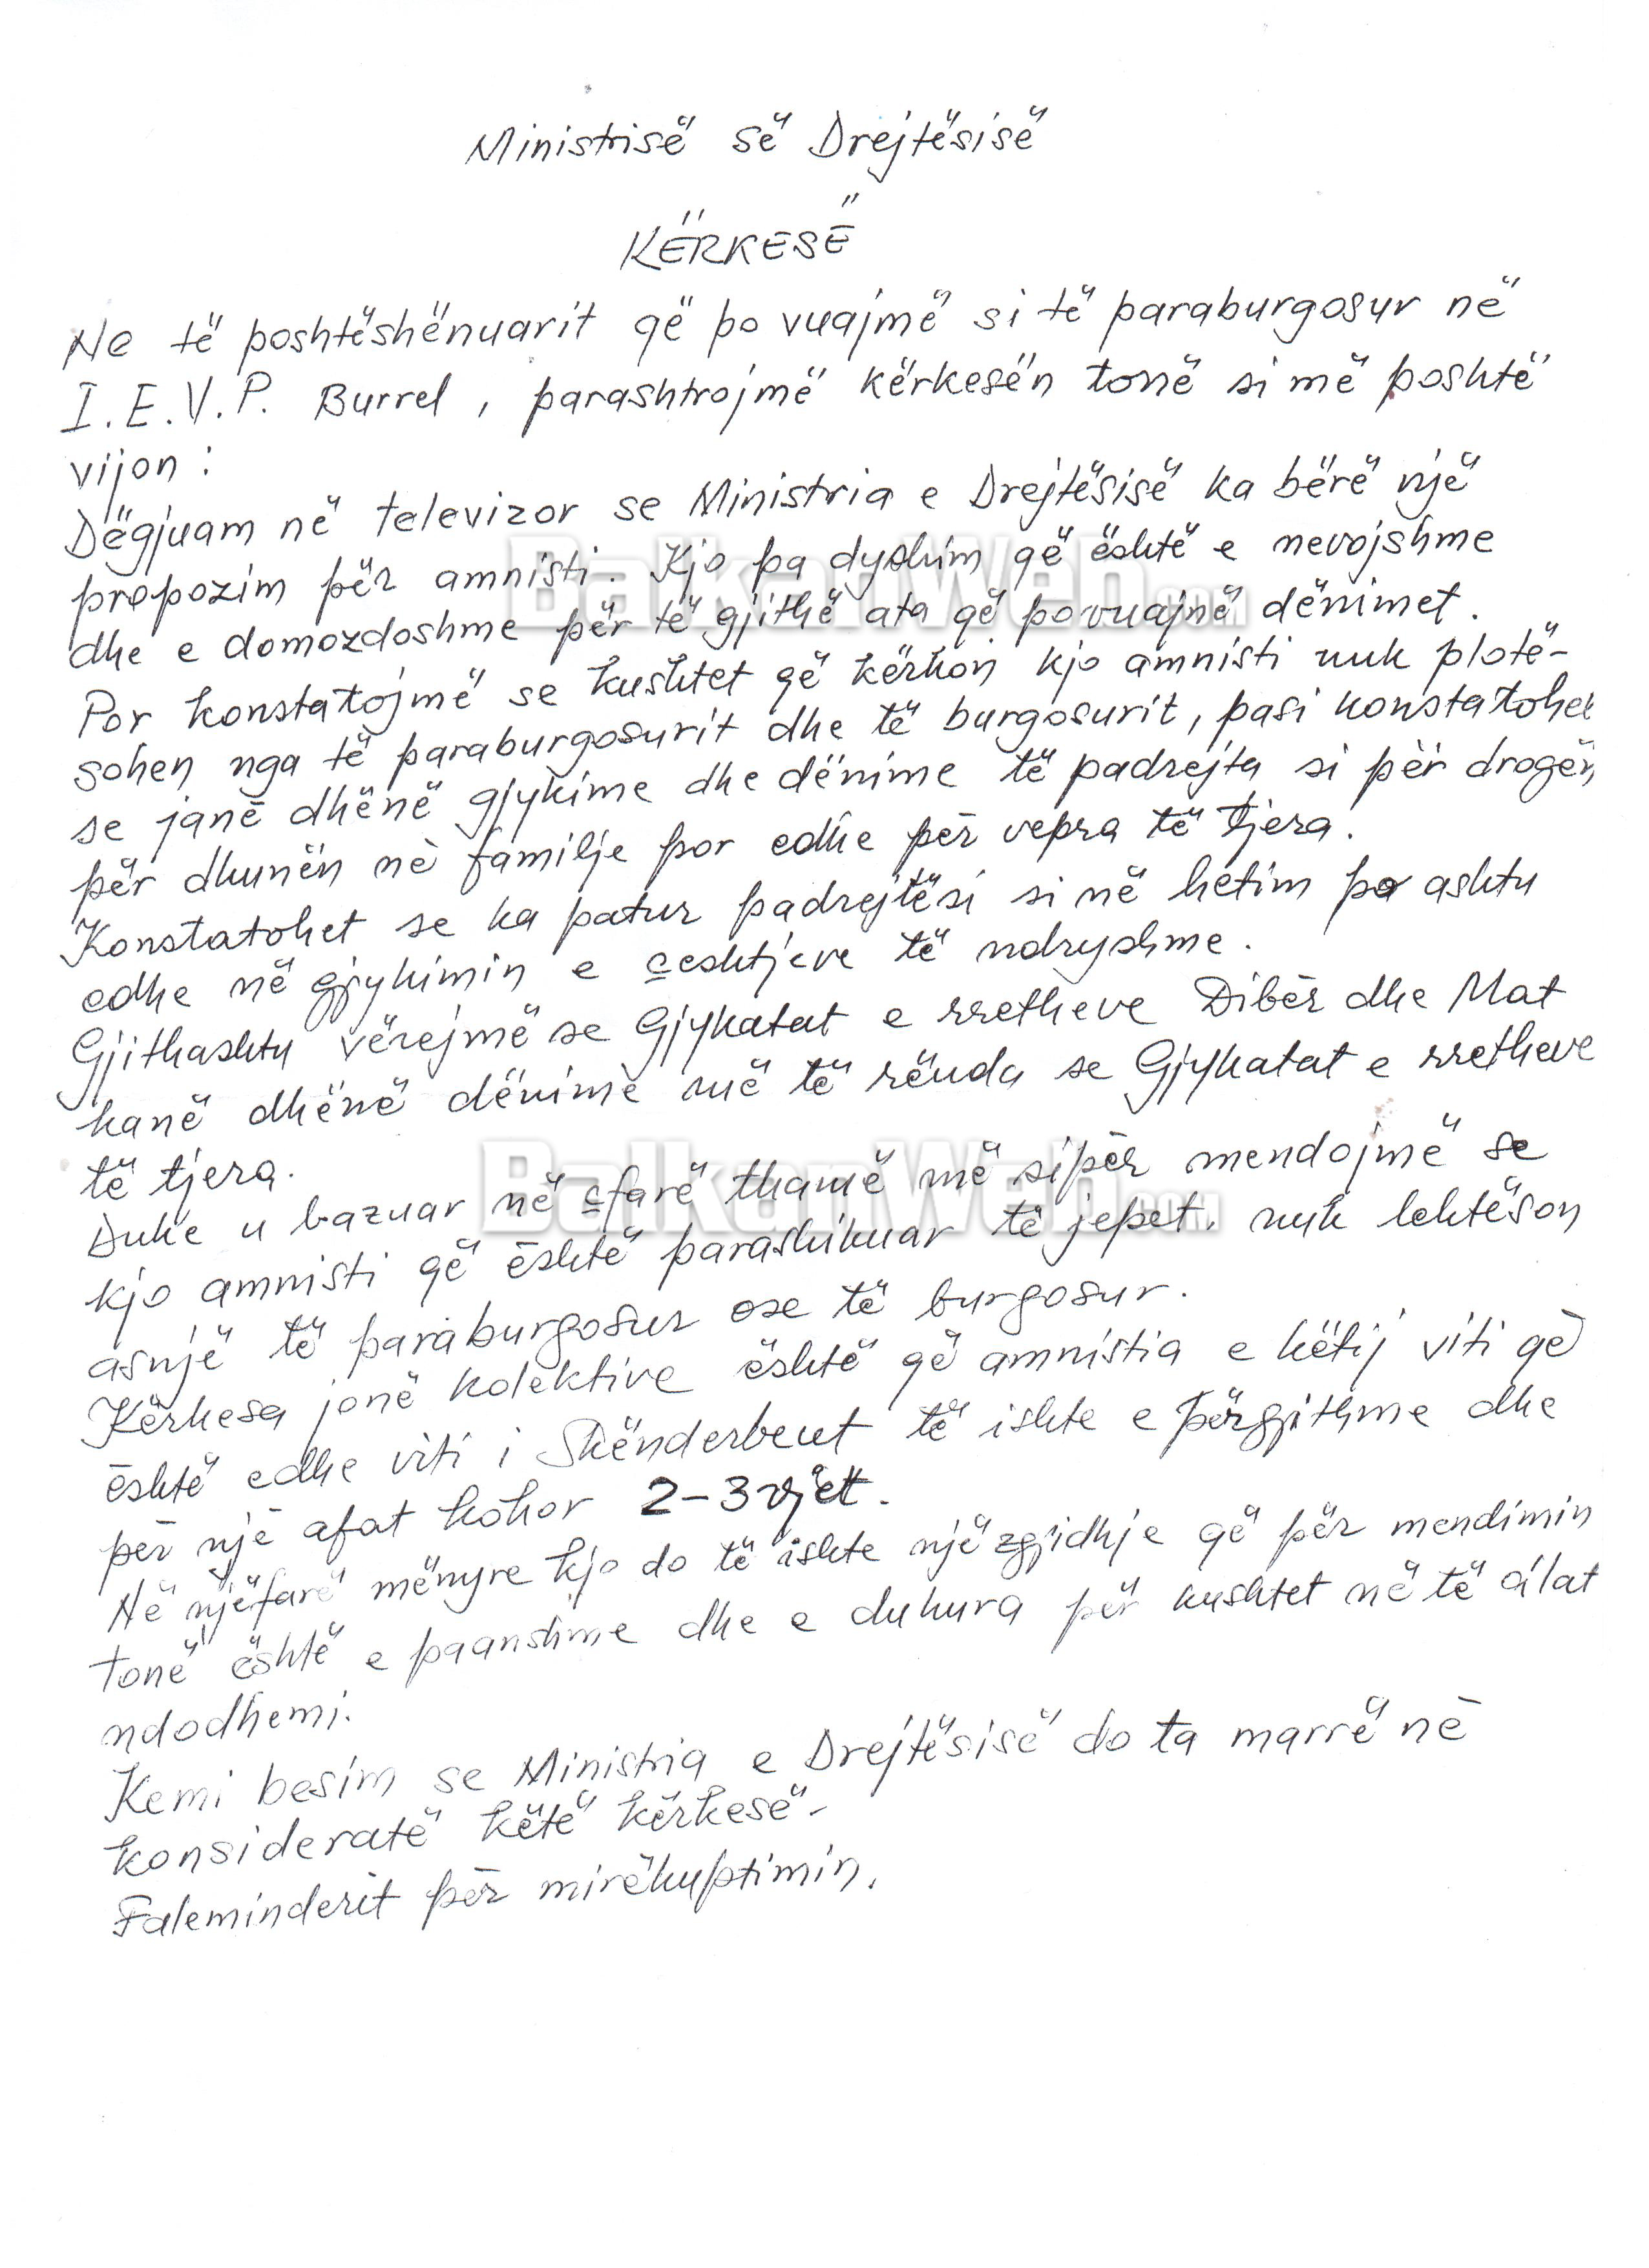 Ministrisë së Drejtësisë
KËRKESË
Ne të poshtëshënuarit që po vuajmë si të paraburgosur në
I.E.V.P. Burrel, parashtrojmë kërkesën tonë si më poshtë
vijon:
Dëgjuam në televizor se Ministria e Drejtësisë ka bërë një
propozim për amnisti. Kjo pa dyshim që është e nevojshme
dhe e domozdoshme për të gjithë ata që po vuajnë dënimet.
Por konstatojmë se kushtet që kërkon kjo amnisti nuk plotë-
sohen nga të paraburgosurit dhe të burgosurit, pasi konstatohet
se janë dhënë gjykime dhe dënime të padrejta si për drogën
për dhunën në familje por edhe për vepra të tjera.
Konstatohet se ka patur padrejtësi si në hetim po ashtu
edhe në gjykimin e çeshtjeve të ndryshme.
Gjithashtu vërejmë se Gjykatat e rretheve Dibër dhe Mat
kanë dhënë dënime më të rënda se Gjykatat e rretheve
të tjera.
Duke u bazuar në çfarë thamë më sipër mendojmë se
kjo amnisti që është parashikuar të jepet, nuk lehtëson
asnjë të paraburgosur ose të burgosur.
Kërkesa jonë kolektive është që amnistia e këtij viti që
është edhe viti i Skënderbeut të ishte e përgjithme dhe
për një afat kohor 2-3 vjet.
Në njëfarë mënyre kjo do të ishte një zgjidhje që për mendimin
tonë është e paanshme dhe e duhura për kushtet në të cilat
ndodhemi.
Kemi besim se Ministria e Drejtësisë do ta marrë në
konsideratë këtë kërkesë.
Faleminderit për mirëkuptimin.
BalkanWeb.com
BalkanWeb.com